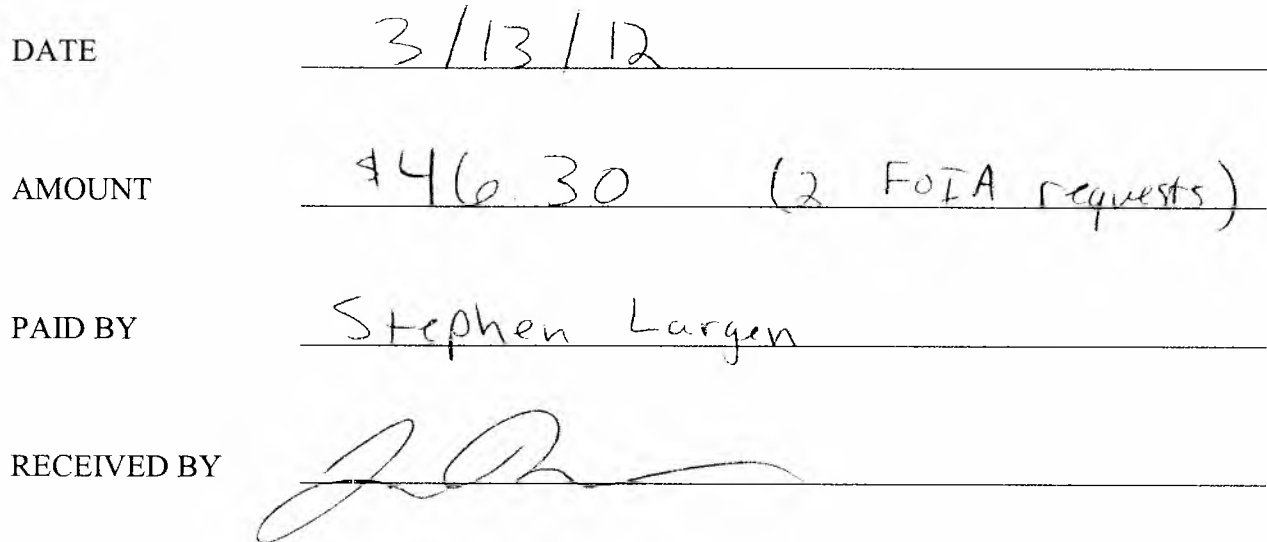 DATE 3/13/12
AMOUNT $46.30 (2 FOIA requests)
PAID BY Stephen Largen
RECEIVED BY